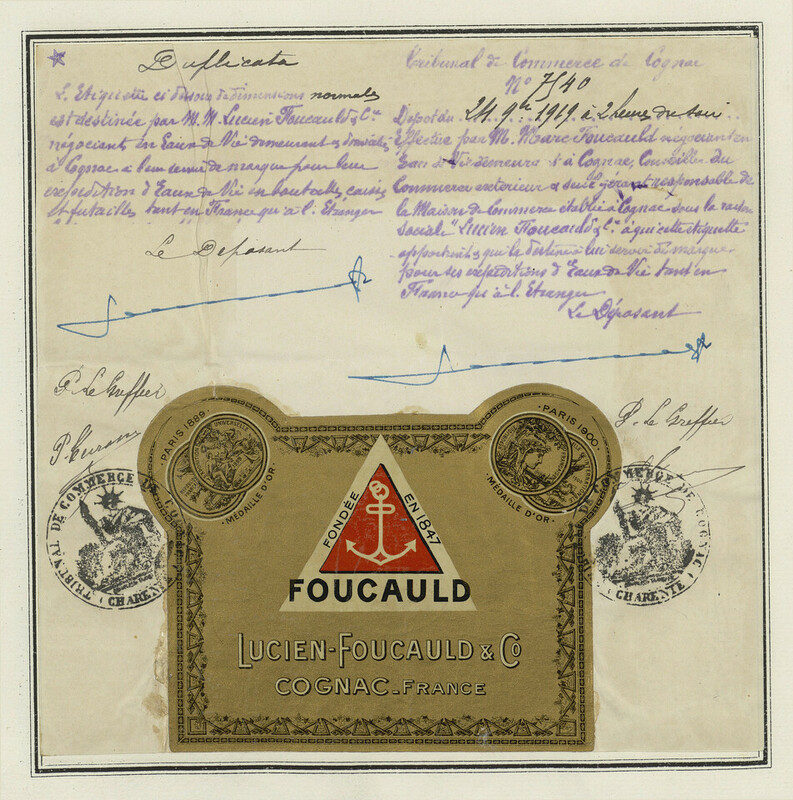 Duplicata
L'Etiquette ci dessous de dimensions normales
est destinée par M.M. Lucien Foucauld & Cie
négociant en Eaux de Vie demeurant et domiciliés
à Cognac à leur servir de marque pour leur
expédition d'Eaux de Vie en bouteilles caisses
et futailles tant en France qu'à l'Etranger
Le Déposant
P. le Greffier
Tribunal de Commerce de Cognac
No 7540
Dépot du 24 9bre 1919 à 2 heures du soir
Effectué par M. Marc Foucauld négociant en
Eau de Vie demeurant à Cognac, Conseiller du
Commerce extérieur & seul gérant responsable de
la Maison de Commerce établie à Cognac sous la raison
sociale "Lucien Foucauld & Cie" à qui cette étiquette
appartient et qui la destine à lui servir de marque
pour ses expéditions d'Eaux de Vie tant en
France qu'à l'Etranger
Le Déposant
P. le Greffier
TRIBUNAL DE COMMERCE DE CO
CHARENTE
PARIS 1889
UNIVERSELLE
MÉDAILLE D'OR
PARIS 1900
MÉDAILLE D'OR
FONDÉE EN 1847
FOUCAULD
LUCIEN-FOUCAULD & Co
COGNAC-FRANCE
DE COMMERCE DE COGNAC
CHARENTE